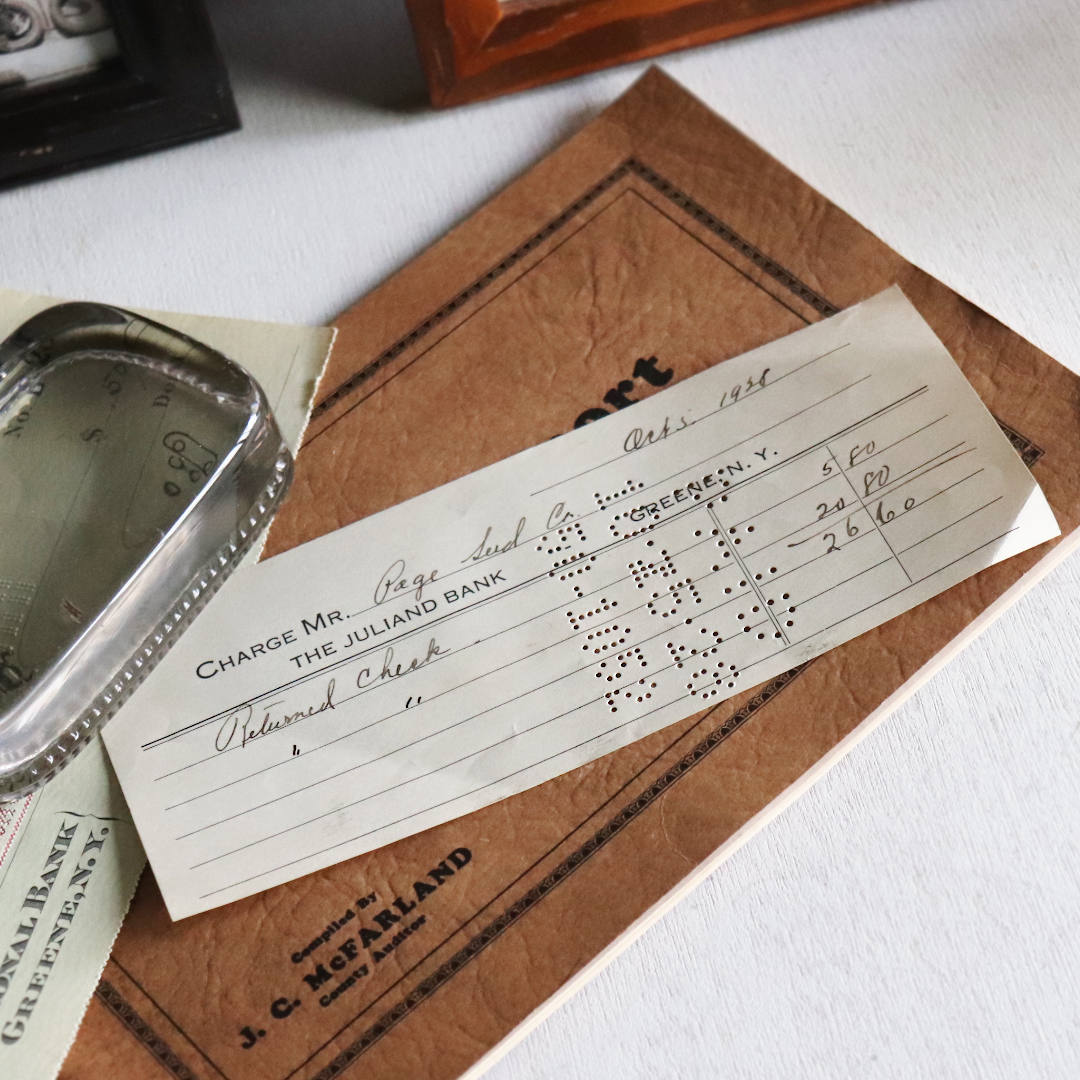 ort
Oct 5. 1928
CHARGE MR. Page Seed Co.
THE JULIAND BANK
GREENE, N. Y.
Returned Check 5 80
" " 20 80
26 60
Compiled By
J. C. McFARLAND
County Auditor
No.
$
ONAL BANK
GREENE, N.Y.